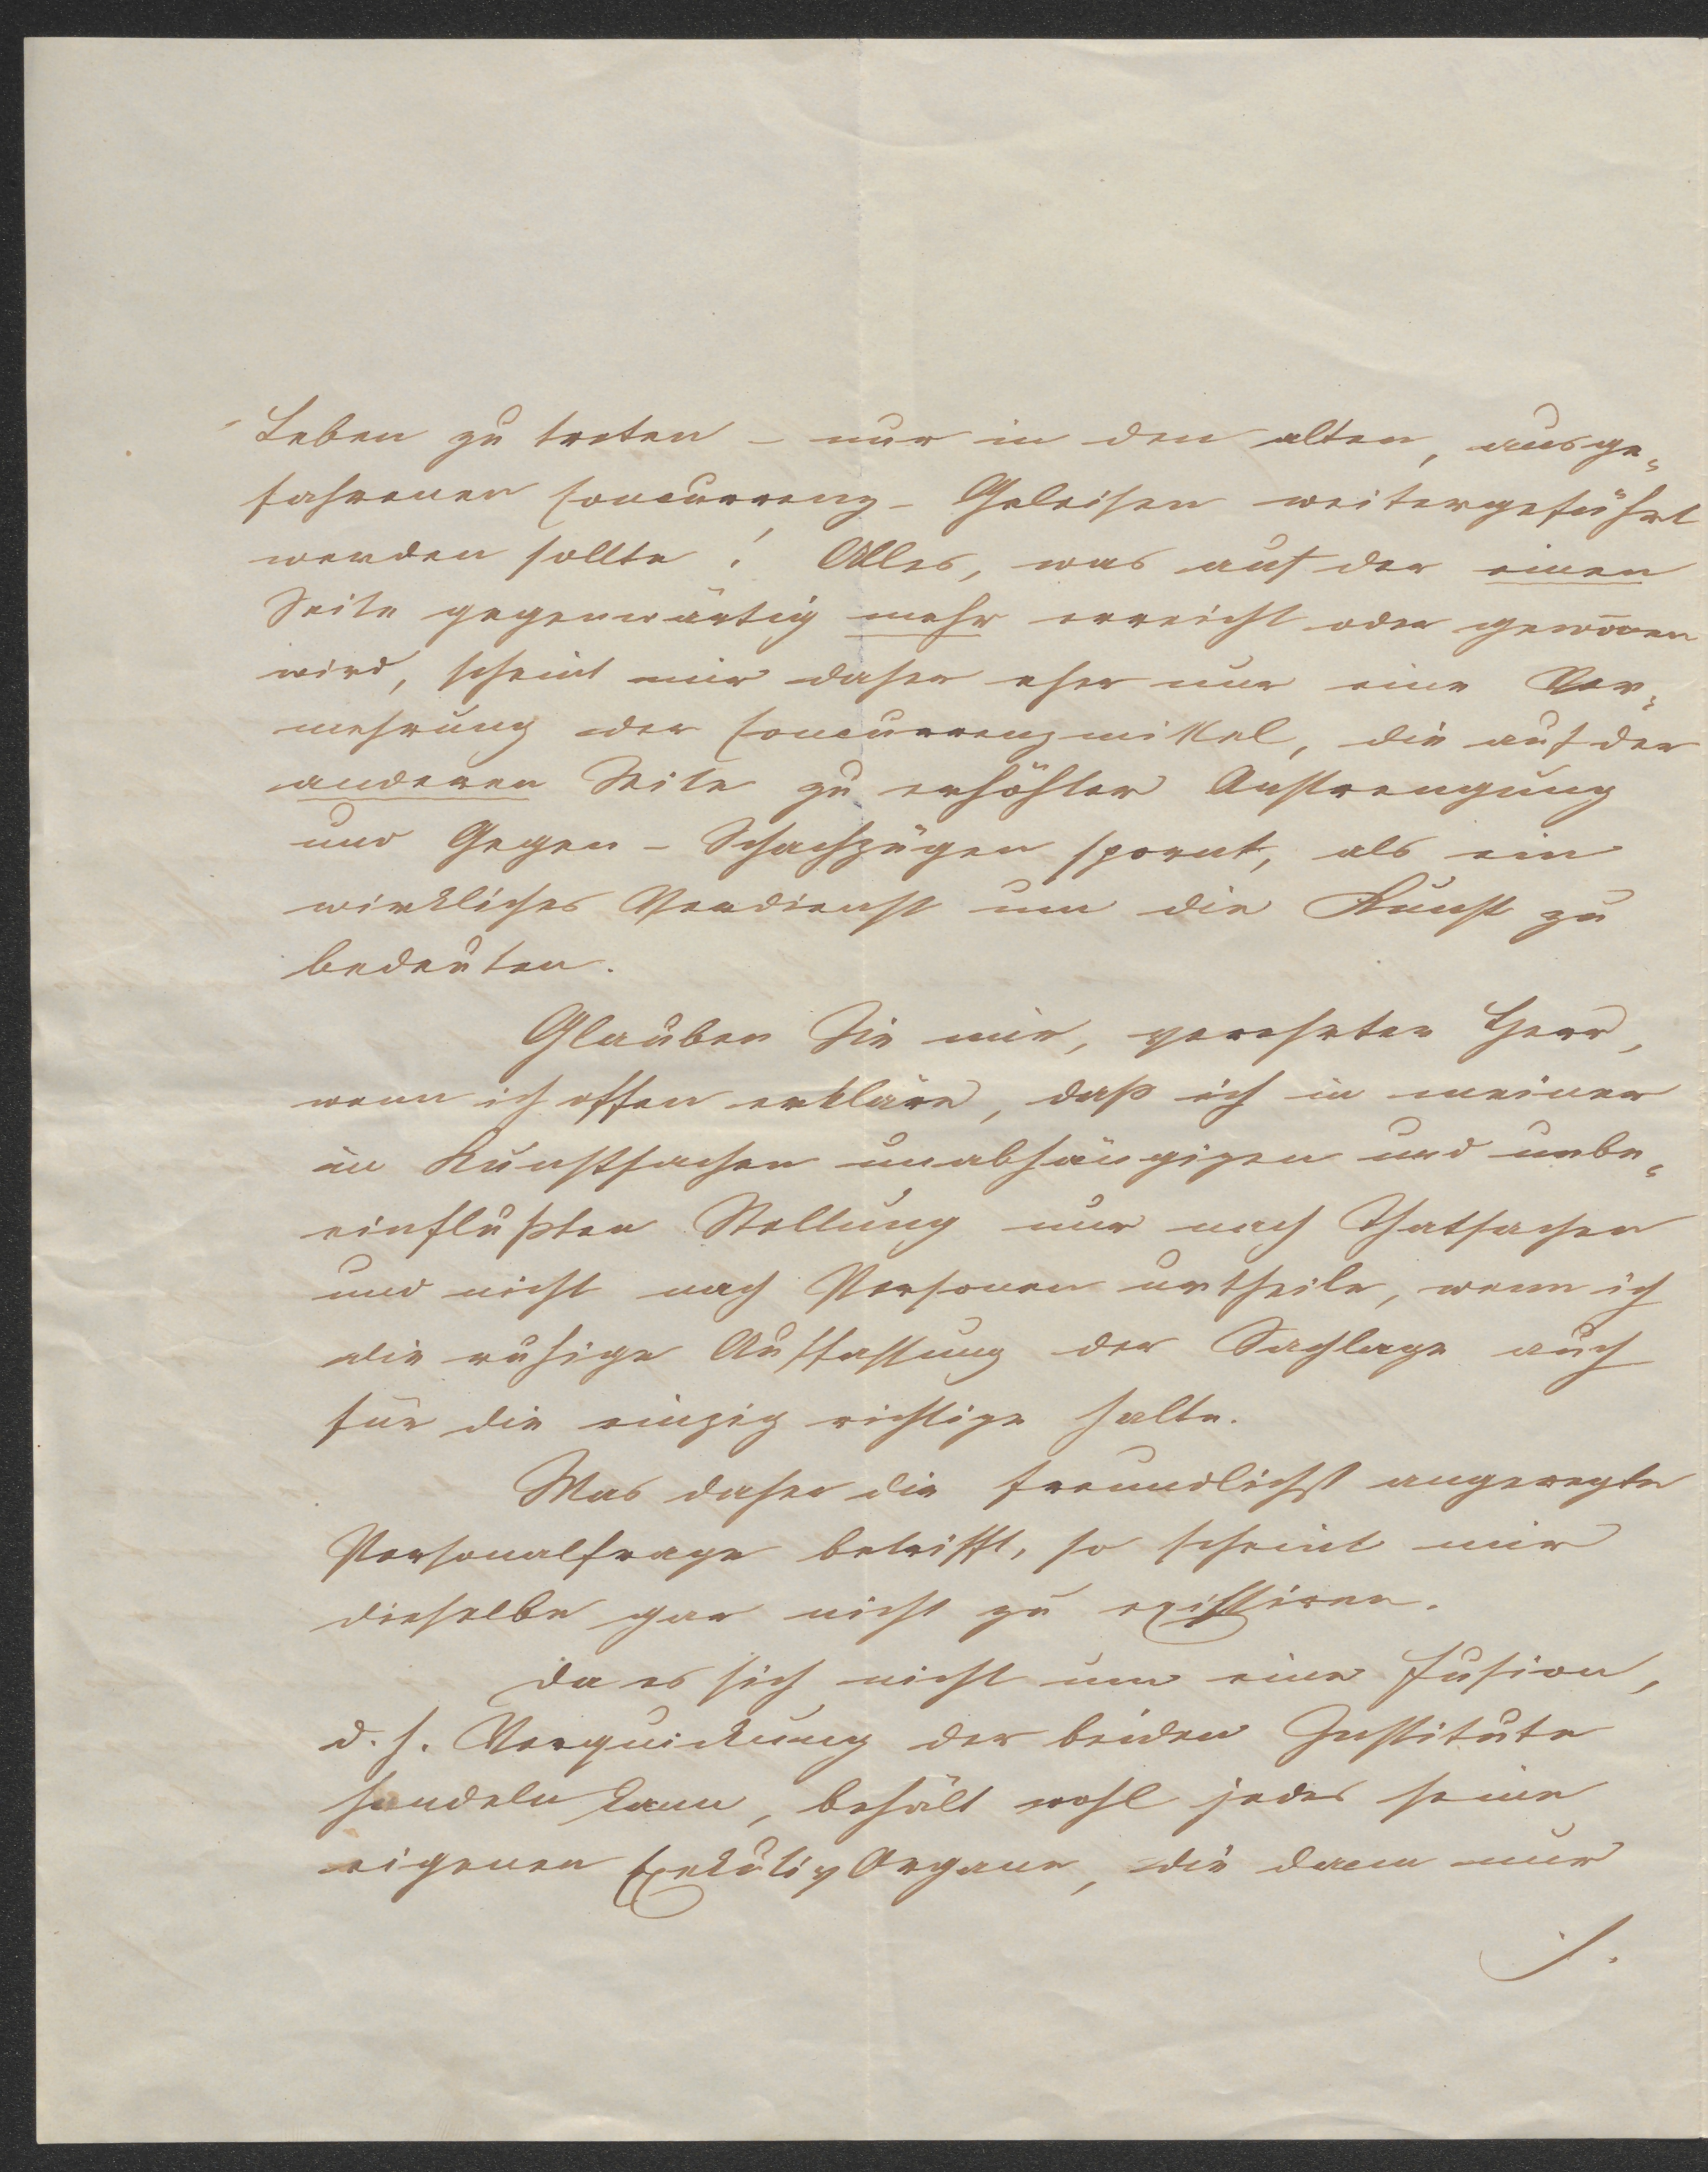 Leben zu treten – nur in den alten, ausge=
fahrenen Concurrenz-Geleisen weitergeführt
werden sollte! Alles, was auf der einen
Seite gegenwärtig mehr erreicht oder gewon̄en
wird, scheint mir daher eher nur eine Ver=
mehrung der Concurrenzmittel, die auf der
anderen Seite zu erhöhter Anstrengung
und Gegen-Schachzügen spornt, als ein
wirkliches Verdienst um die Kunst zu
bedeuten.
Glauben Sie mir, verehrter Herr,
wenn ich offen erkläre, daß ich in meiner
in Kunstsachen unabhängigen und unbe=
einflußten Stellung nur nach Thatsachen
und nicht nach Personen urtheile, wenn ich
die ruhige Auffassung der Sachlage auch
für die einzig richtige halte.
Was daher die freundlichst angeregte
Personalfrage betrifft, so scheint mir
dieselbe gar nicht zu existiren.
Da es sich nicht um eine Fusion,
d. h. Verquickung der beiden Institute
handeln kann, behält wohl jedes seine
eigenen Exekutiv Organe, die dann nur